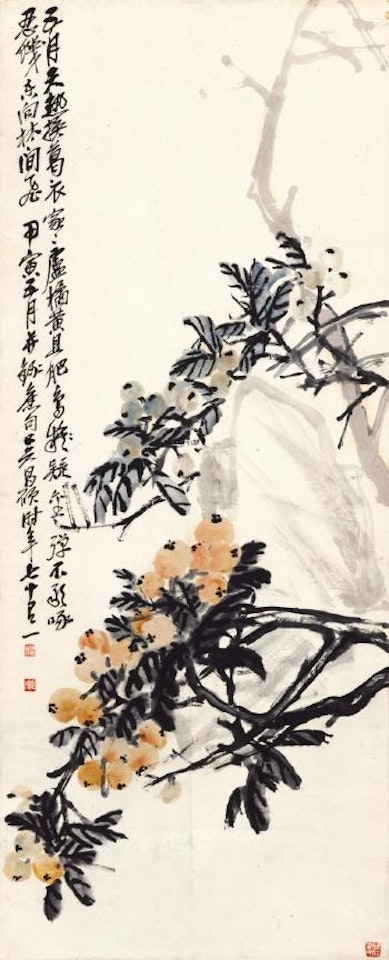 五月天熱換葛衣家〻盧橘黃且肥鳥疑金彈不敢啄
忍饑空向林間飛 甲寅五月并錄舊句吳昌碩時年七十有一